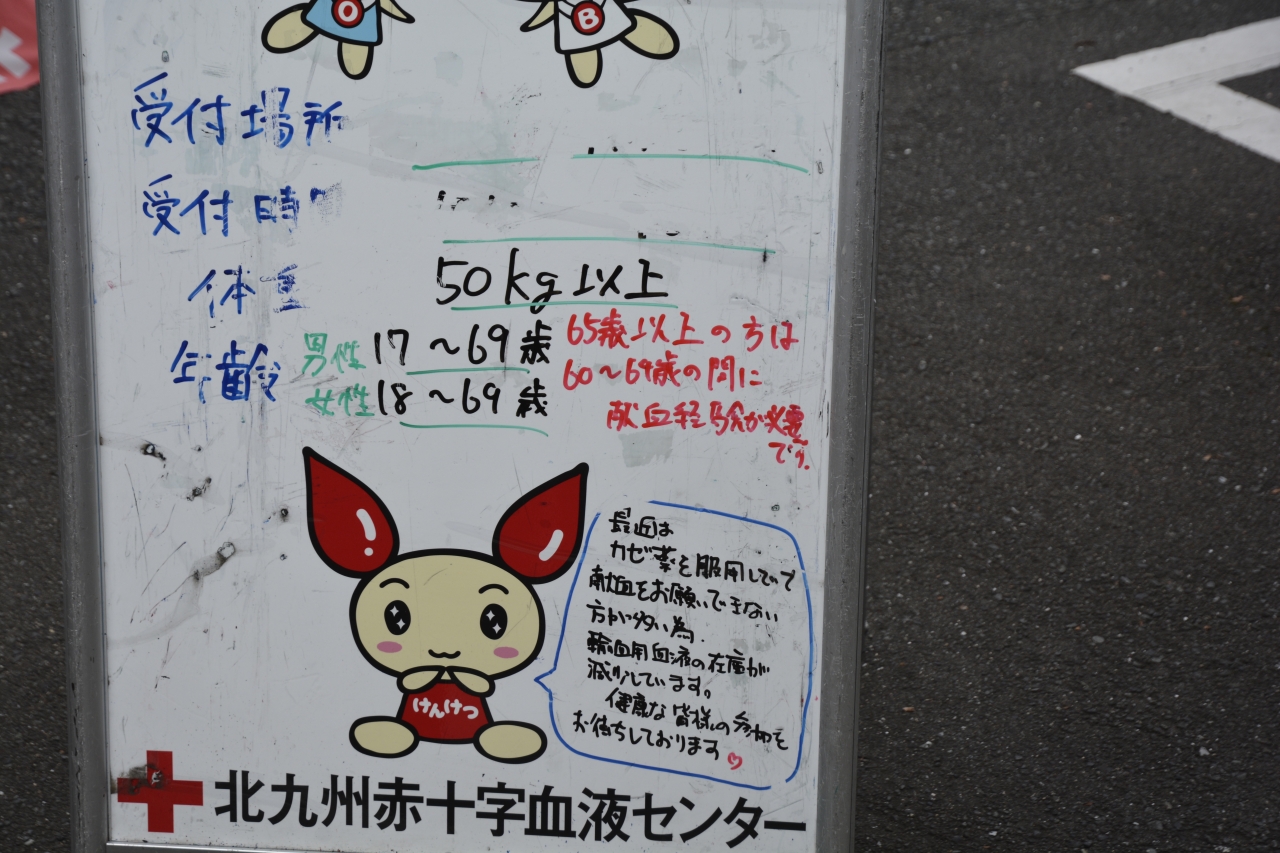 O B
受付場所
受付時
体重 50kg以上
年齢 男性 17～69歳
女性 18～69歳
65歳以上の方は
60～64歳の間に
献血経験が必要
です。
最近は
カゼ薬を服用していて
献血をお願いできない
方が多い為、
輸血用血液の在庫が
減少しています。
健康な皆様の参加を
お待ちしております♡
けんけつ
北九州赤十字血液センター